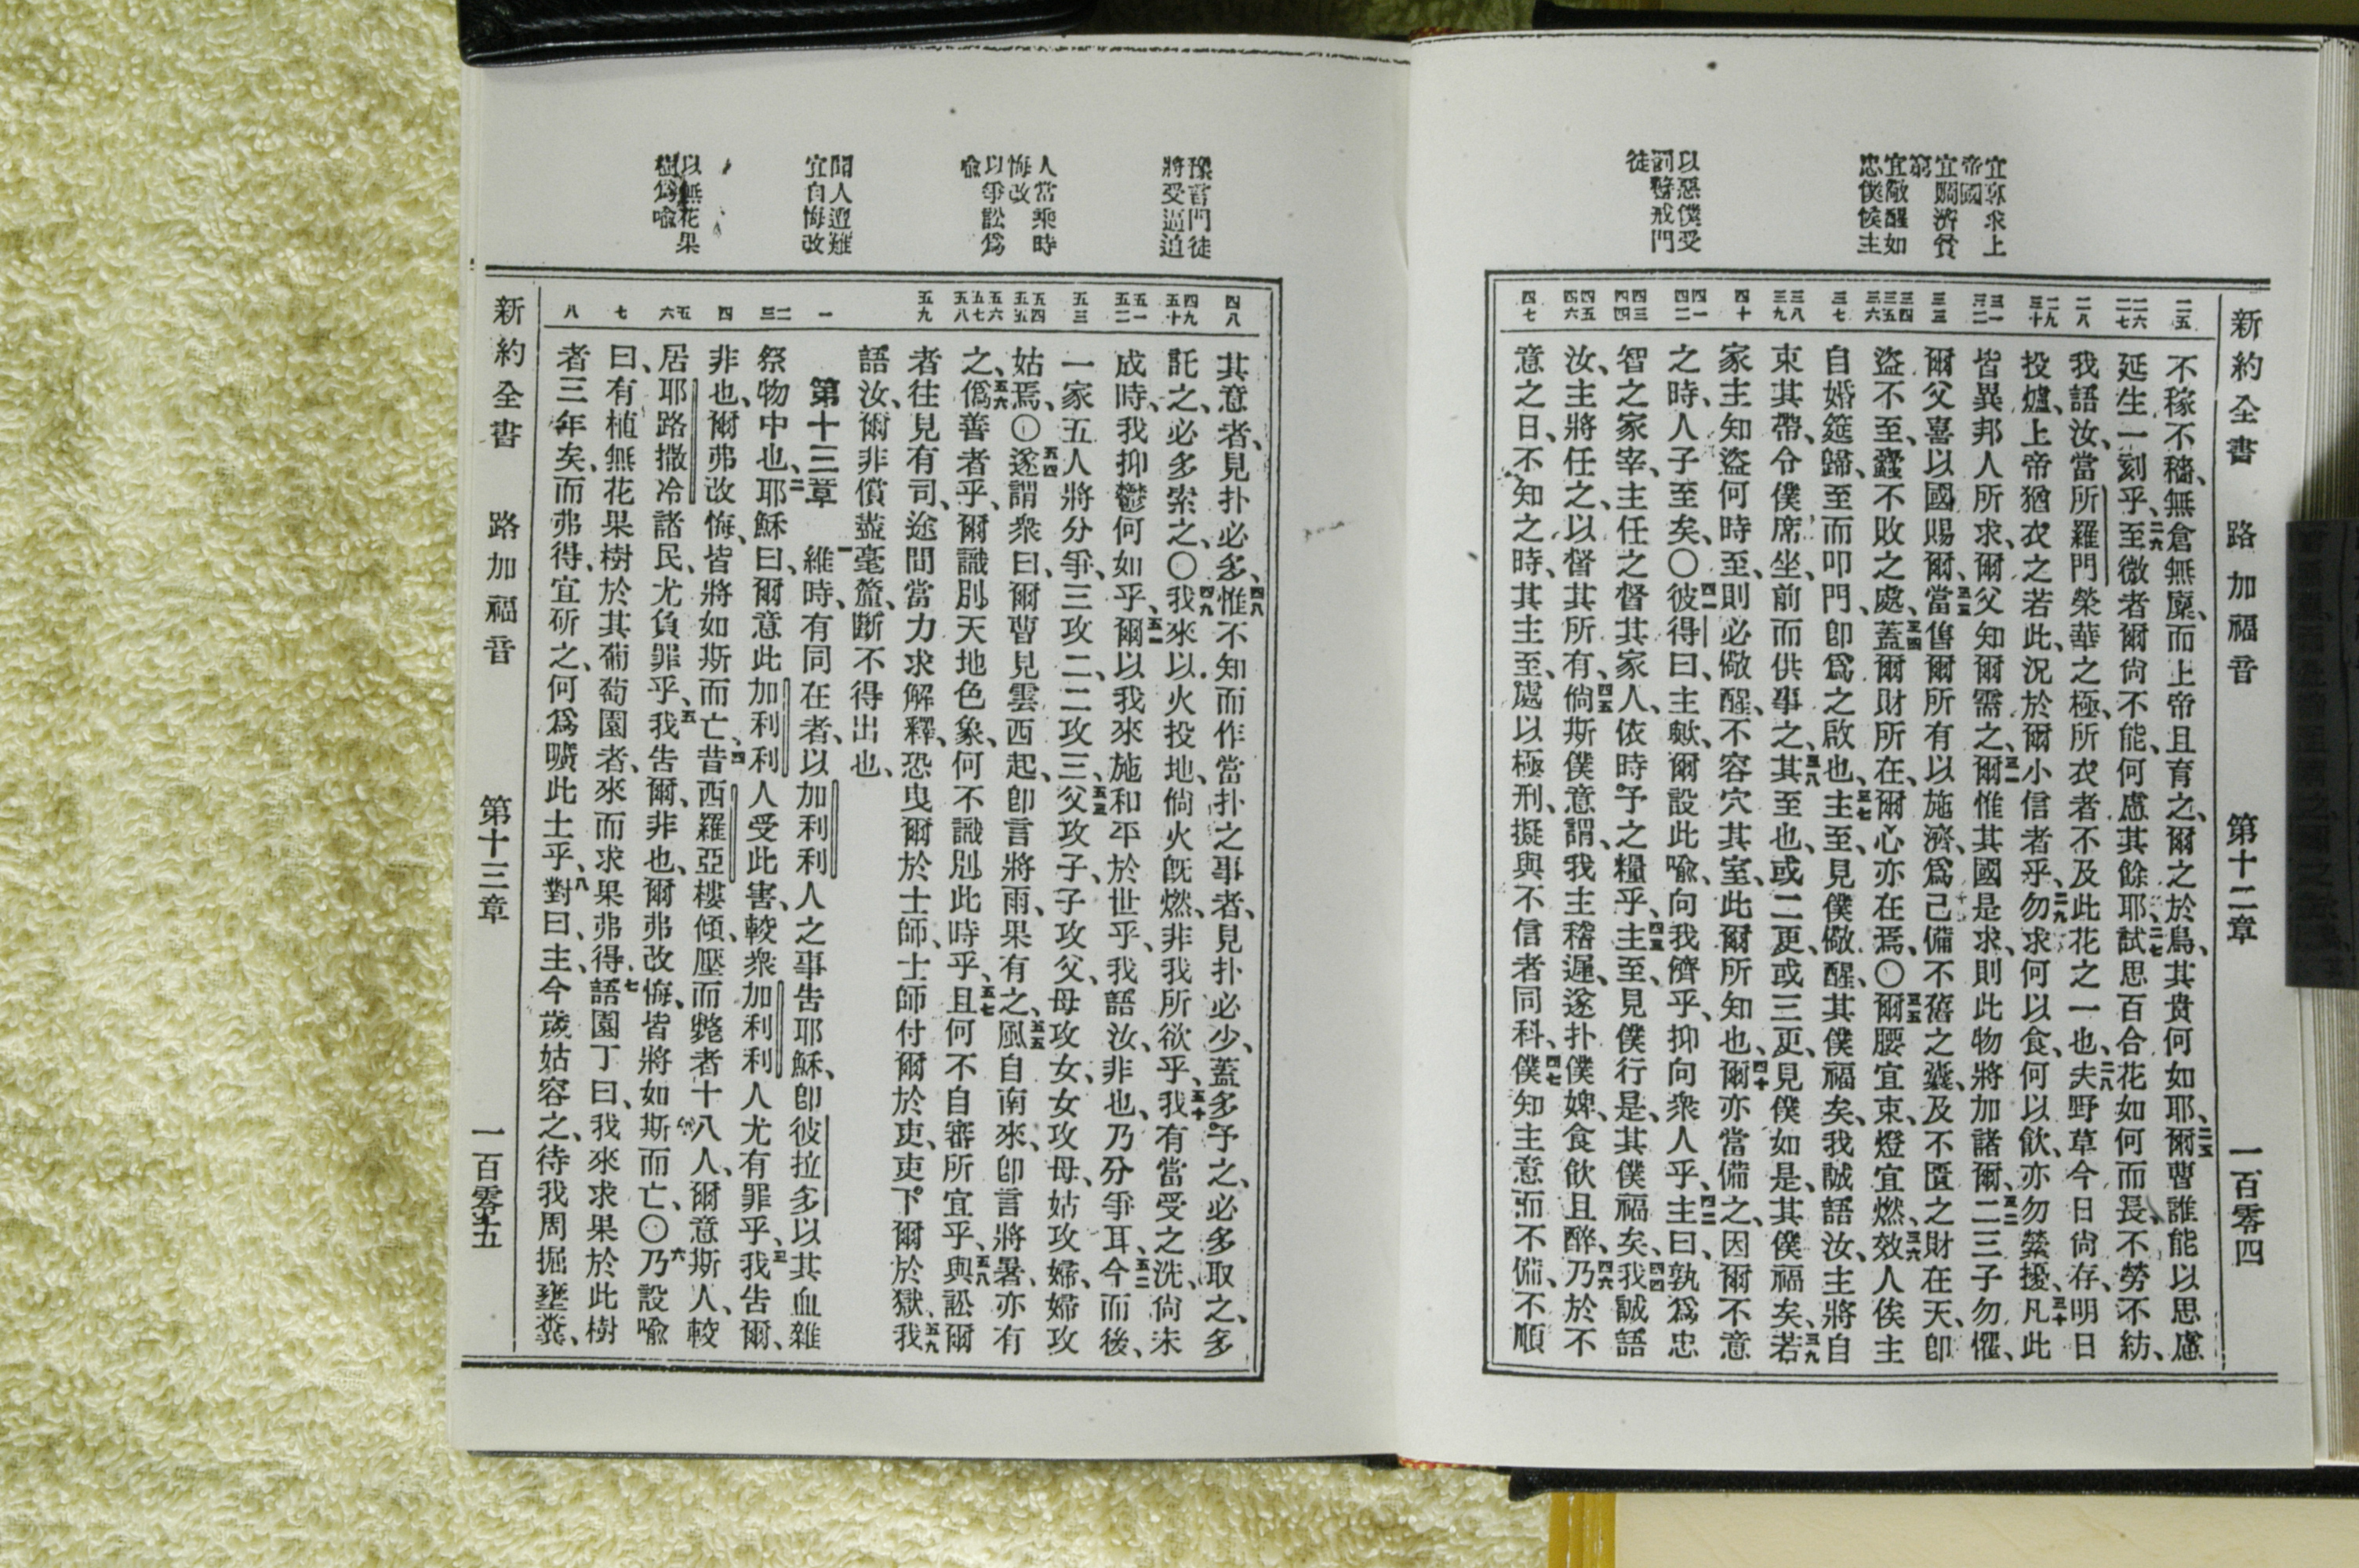 宜專求上
帝國
宜賙濟貧
窮
宜儆醒如
忠僕候主
以惡僕受
罰警戒門
徒
新約全書 路加福音 第十二章 一百零四
二五 二六 二七 二八 二九 三十 三一 三二 三三 三四 三五 三六 三七 三八 三九 四十 四一 四二 四三 四四 四五 四六 四七
不稼不穡、無倉無廩、而上帝且育之、爾之於鳥、其貴何如耶、二五爾曹誰能以思慮
延生一刻乎、二六至微者爾尙不能、何慮其餘耶、二七試思百合花如何而長、不勞不紡、
我語汝、當所羅門榮華之極、所衣者不及此花之一也、二八夫野草今日尙存、明日
投爐、上帝猶衣之若此、況於爾小信者乎、二九勿求何以食、何以飮、亦勿縈擾、三十凡此
皆異邦人所求、爾父知爾需之、三一爾惟其國是求、則此物將加諸爾、三二二三子勿懼、
爾父喜以國賜爾、三三當售爾所有以施濟、爲己備不舊之囊、及不匱之財在天、卽
盜不至、蠧不敗之處、三四蓋爾財所在、爾心亦在焉、〇三五爾腰宜束、燈宜燃、三六效人俟主
自婚筵歸、至而叩門、卽爲之啟也、三七主至、見僕儆醒、其僕福矣、我誠語汝、主將自
束其帶、令僕席坐、前而供事之、三八其至也、或二更、或三更、見僕如是、其僕福矣、三九若
家主知盜何時至、則必儆醒、不容穴其室、此爾所知也、四十爾亦當備之、因爾不意
之時、人子至矣、〇四一彼得曰、主歟、爾設此喻、向我儕乎、抑向衆人乎、四二主曰、孰爲忠
智之家宰、主任之督其家人、依時予之糧乎、四三主至、見僕行是、其僕福矣、四四我誠語
汝、主將任之、以督其所有、四五倘斯僕意謂、我主稽遲、遂扑僕婢、食飮且醉、四六乃於不
意之日、不知之時、其主至、處以極刑、擬與不信者同科、四七僕知主意而不備、不順
豫言門徒
將受逼迫
人當乘時
悔改
以爭訟爲
喻
聞人遭難
宜自悔改
以無花果
樹爲喻
四八 四九 五十 五一 五二 五三 五四 五五 五六 五七 五八 五九 一 二 三 四 五 六 七 八
其意者、見扑必多、四八惟不知而作當扑之事者、見扑必少、蓋多予之、必多取之、多
託之、必多索之、〇四九我來以火投地、倘火旣燃、非我所欲乎、五十我有當受之洗、尙未
成時、我抑鬱何如乎、五一爾以我來施和平於世乎、我語汝、非也、乃分爭耳、五二今而後、
一家五人將分爭、三攻二、二攻三、五三父攻子、子攻父、母攻女、女攻母、姑攻婦、婦攻
姑焉、〇五四遂謂衆曰、爾曹見雲西起、卽言將雨、果有之、五五風自南來、卽言將暑、亦有
之、五六僞善者乎、爾識別天地色象、何不識別此時乎、五七且何不自審所宜乎、五八與訟爾
者往見有司、途間當力求解釋、恐曳爾於士師、士師付爾於吏、吏下爾於獄、五九我
語汝、爾非償盡毫釐、斷不得出也、
第十三章 一維時、有同在者、以加利利人之事告耶穌、卽彼拉多以其血雜
祭物中也、二耶穌曰、爾意此加利利人受此害、較衆加利利人尤有罪乎、三我告爾、
非也、爾弗改悔、皆將如斯而亡、四昔西羅亞樓傾、壓而斃者十八人、爾意斯人、較
居耶路撒冷諸民、尤負罪乎、五我告爾、非也、爾弗改悔、皆將如斯而亡、〇六乃設喻
曰、有植無花果樹於其葡萄園者、來而求果弗得、七語園丁曰、我來求果於此樹
者三年矣、而弗得、宜斫之、何爲曠此土乎、八對曰、主、今歲姑容之、待我周掘壅糞、
新約全書 路加福音 第十三章 一百零五